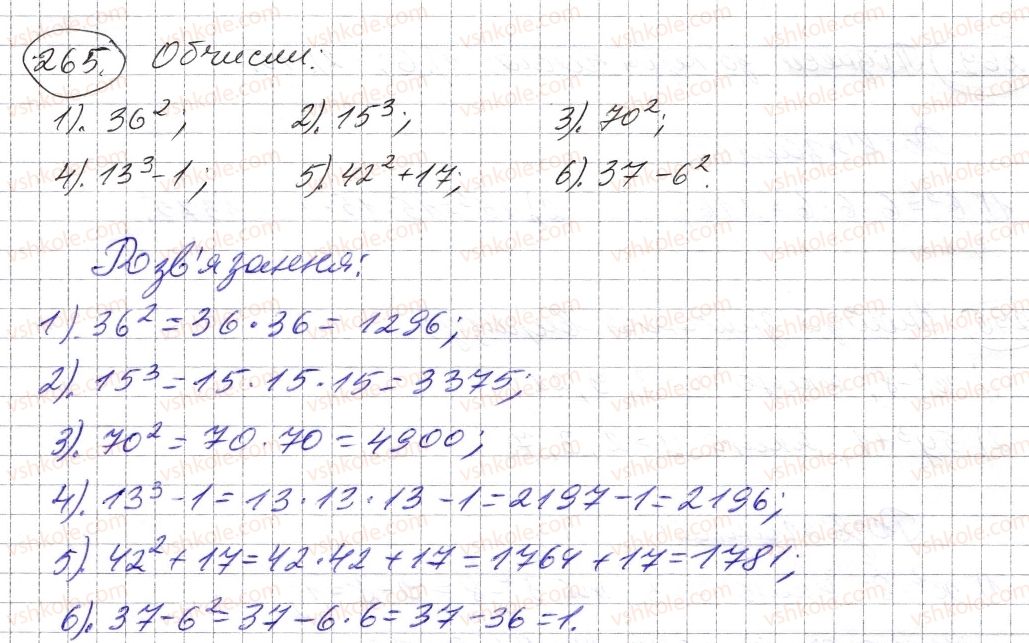 265. Обчисли:
1). 36²; 2). 15³; 3). 70²;
4). 13³-1; 5). 42²+17; 6). 37-6².
Розв'язання:
1). 36² = 36·36 = 1296;
2). 15³ = 15·15·15 = 3375;
3). 70² = 70·70 = 4900;
4). 13³-1 = 13·13·13-1 = 2197-1 = 2196;
5). 42²+17 = 42·42+17 = 1764+17 = 1781;
6). 37-6² = 37-6·6 = 37-36 = 1.
vshkole.com